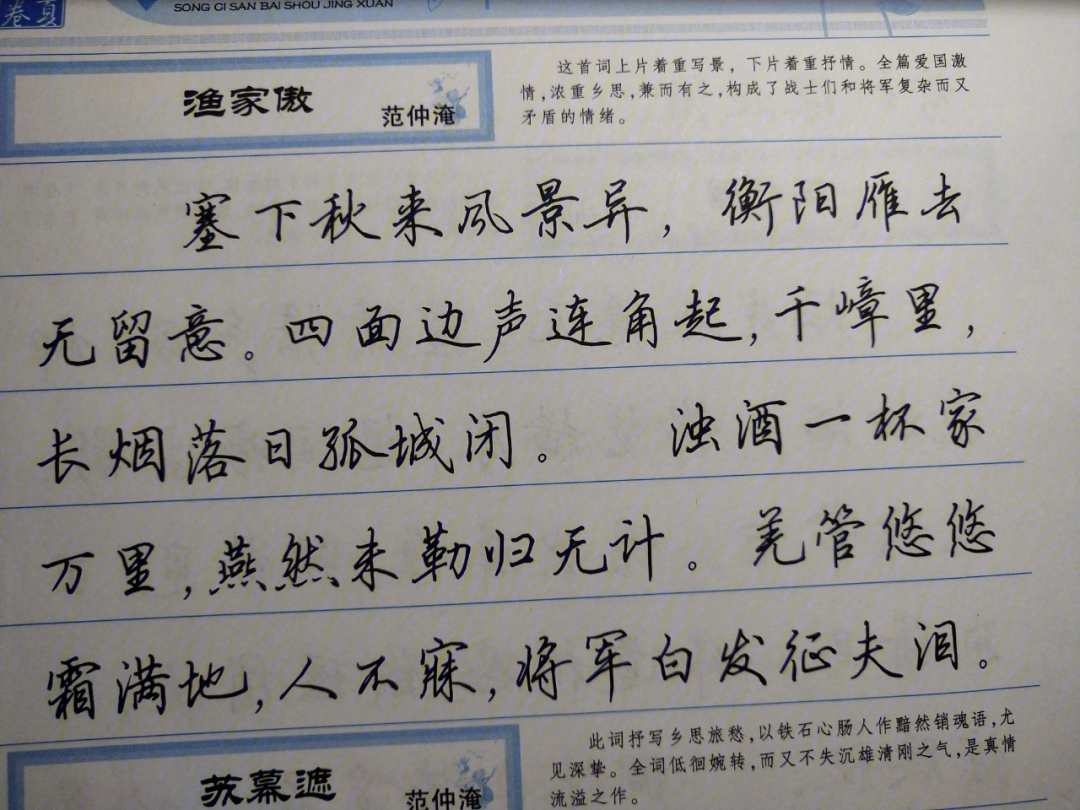 卷
夏
SONG CI SAN BAI SHOU JING XUAN
渔家傲
范仲淹
这首词上片着重写景，下片着重抒情。全篇爱国激
情，浓重乡思，兼而有之，构成了战士们和将军复杂而又
矛盾的情绪。
塞下秋来风景异，衡阳雁去
无留意。四面边声连角起，千嶂里，
长烟落日孤城闭。 浊酒一杯家
万里，燕然未勒归无计。羌管悠悠
霜满地，人不寐，将军白发征夫泪。
苏幕遮
范仲淹
此词抒写乡思旅愁，以铁石心肠人作黯然销魂语，尤
见深挚。全词低徊婉转，而又不失沉雄清刚之气，是真情
流溢之作。